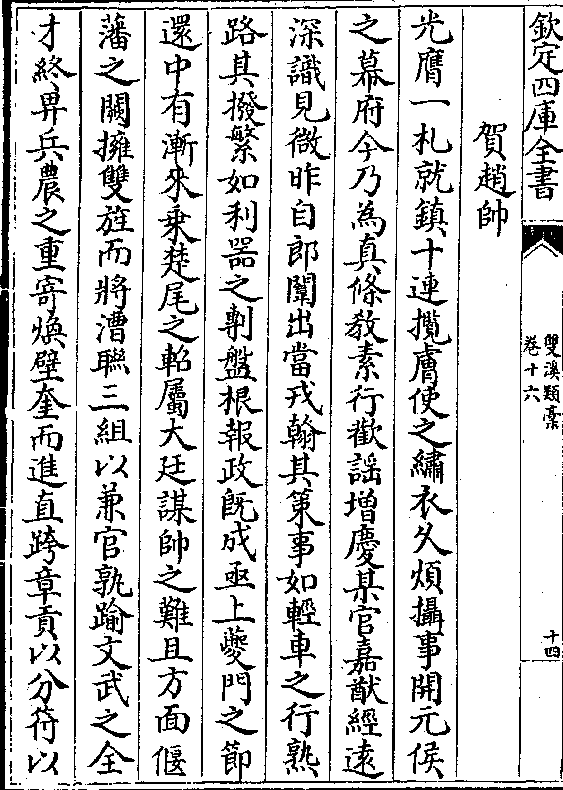 欽定四庫全書
雙溪類槀
卷十六
十四
賀趙帥
光膺一札就鎮十連攬膚使之繡衣久煩攝事開元侯
之幕府今乃為真條教素行歡謡增慶某官嘉猷經遠
深識見微昨自郎闈出當戎翰其策事如輕車之行熟
路其撥繁如利器之剸盤根報政既成亟上夔門之節
還中有漸來乗楚尾之軺屬大廷謀帥之難且方面偃
藩之闕擁雙旌而將漕聯三組以兼官孰踰文武之全
才終畀兵農之重寄煥壁奎而進直跨章貢以分符以